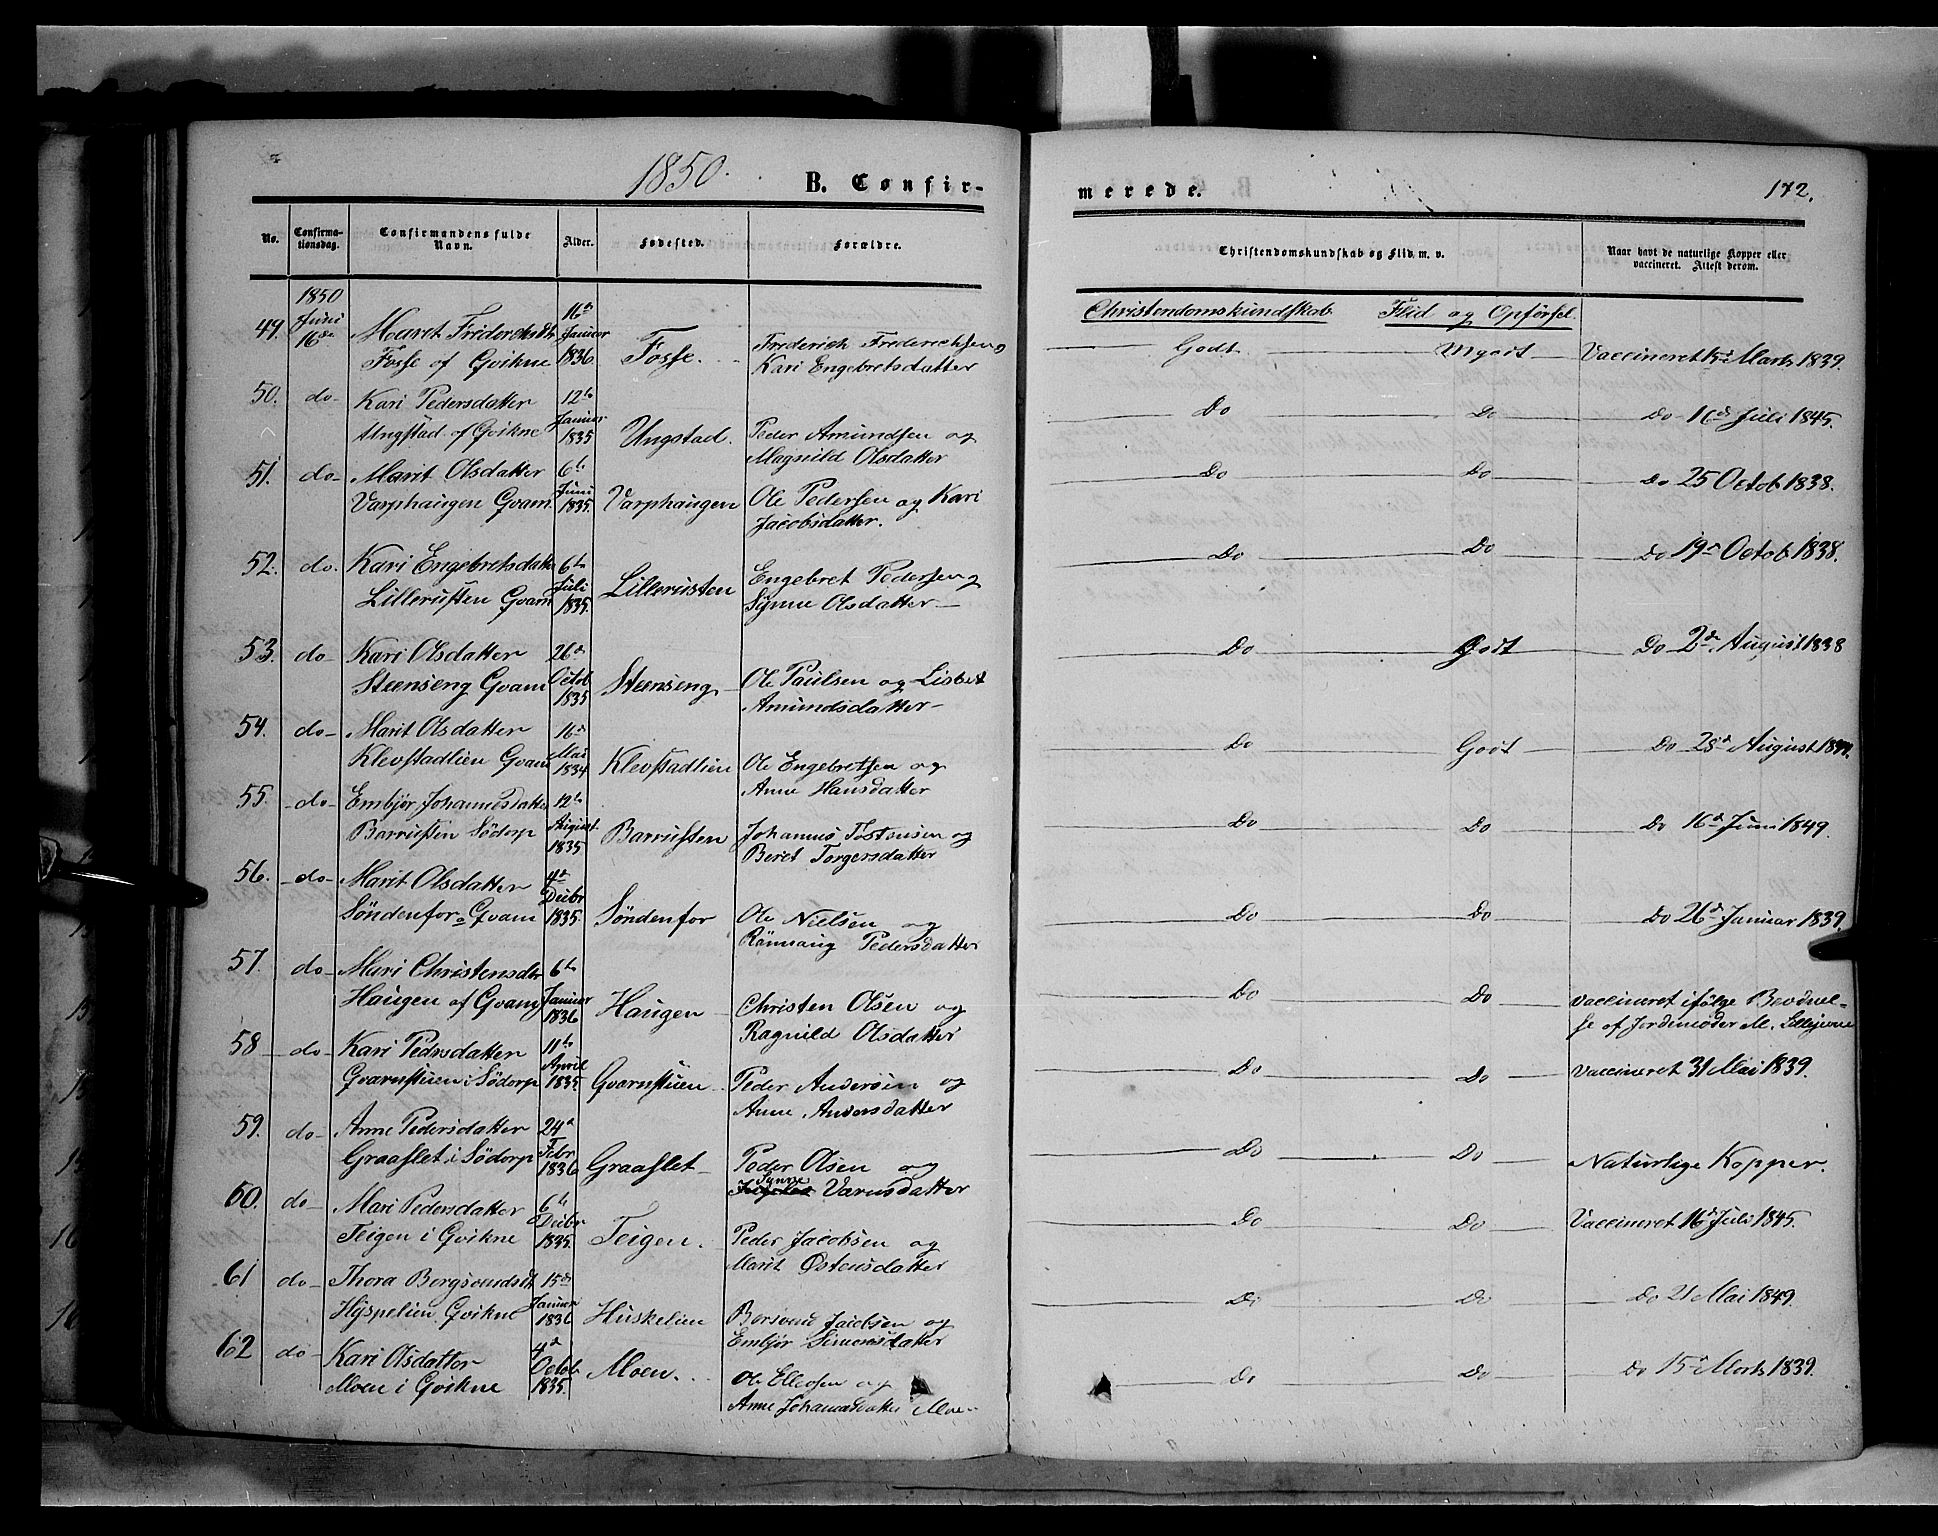 1850. B. Confir-
merede. 172.
No. Confirma-tionsdag. Confirmandens fulde Navn. Alder. Fødested. Forældre. Christendomskundskab og Flid m. v. Naar havt de naturlige Kopper eller vaccineret. Attest derom.
Christendomskundskab. Flid og Opførsel.
49. 1850 Juni 16de Maret Frideriksdtr 16de Januar 1836 Fosse. Frederich Frederichsen og Godt Mgodt Vaccineret 15de Marts 1839.
Fosse af Qvikne Kari Engebretsdatter
50. do- Kari Pedersdatter 12te Januar 1835 Ungstad. Peder Amundsen og Do Do Do 16de Juli 1845.
Ungstad af Qvikne Magnild Olsdatter
51. do- Marit Olsdatter 6te Juni 1835. Varphaugen Ole Pedersen og Kari Do Do Do 25 Octob 1838.
Varphaugen Qvam Jacobsdatter.
52. do. Kari Engebretsdatter 6te Juli 1835. Lillerusten Engebret Pedersen og Do Do Do 19de Octob 1838.
Lillerusten Qvam Synne Olsdatter-
53. do- Kari Olsdatter 26de Octob 1835 Steenseng Ole Paulsen og Lisbet Do Godt Do 2den August 1838
Steenseng Qvam Amundsdatter-
54. do- Marit Olsdatter 16de Mai 1834 Klevstadlien Ole Engebretsen og Do Godt Do 28de August
Klevstadlien Qvam Anne Hansdatter
55. do- Embjør Johannesdatter 12te August 1835 Barrusten Johannes Tostensen og Do Do Do 16de Juni 1849.
Barrusten Sødorp Beret Torgersdatter
56. do- Marit Olsdatter 4de Decbr 1835. Søndenfor Ole Nielsen og Do Do Do 26de Januar 1839.
Søndenfor Qvam Rønnaug Pedersdatter
57. do- Mari Christensdtr 6te Januar 1836 Haugen Christen Olsen og Do Do vaccineret ifølge Bevidnel-
Haugen af Qvam Ragnild Olsdatter se af Jordemoder M. Lillejevne
58 do- Kari Pedersdatter 11te April 1835 Qvarnstuen Peder Andersen og Do Do vaccineret 31 Mai 1839.
Qvarnstuen i Sødorp Anne Andersdatter
59. do- Anne Pedersdatter 24de Febr 1836 Graaslet Peder Olsen og Do Do Naturlige Kopper.
Graaslet i Sødorp Synne Varnsdatter
60. do- Mari Pedersdatter 6te Decbr 1835. Teigen. Peder Jacobsen og Do Do Vaccineret 16de Juli 1845.
Teigen i Qvikne Marit Østensdatter
61 do- Thora Bergsvendsdt 15de Januar 1836 Huskelien Bersvend Jacobsen og Do Do Do 21 Mai 1849.
Hyspelien Qvikne Embjør Simensdatter
62 do- Kari Olsdatter 4de Octob 1835. Moen. Ole Ellevsen og Do Do Do 15de Marts 1839.
Moen i Qvikne Anne Johannesdatter Moe